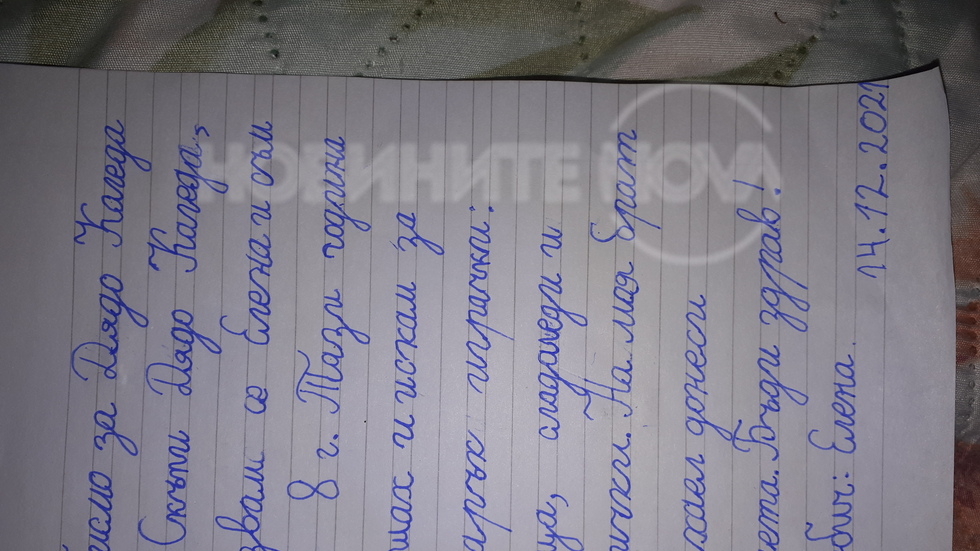 исмо за Дядо Каледа
Скъпи Дядо Каледа,
звам се Елена и съм
8 г. Тази година
шах и искам за
арък играчки:
ца, сладаледи и
ички. На моя брат
хаел донеси
ета. Бъди здрав!
бич: Елена.
14.12.2021
НОВИНИТЕ NOVA